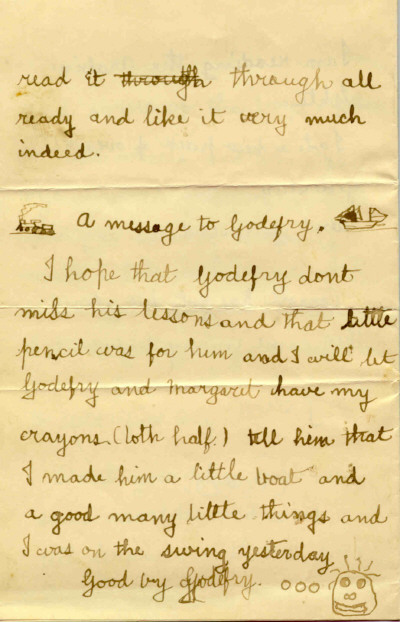 read it through through all
ready and like it very much
indeed.
A message to Godefry.
I hope that Godefry dont
miss his lessons and that little
pencil was for him and I will let
Godefry and Margaret have my
crayons. (both half.) tell him that
I made him a little boat and
a good many little things and
I was on the swing yesterday
Good by Godefry. ooo